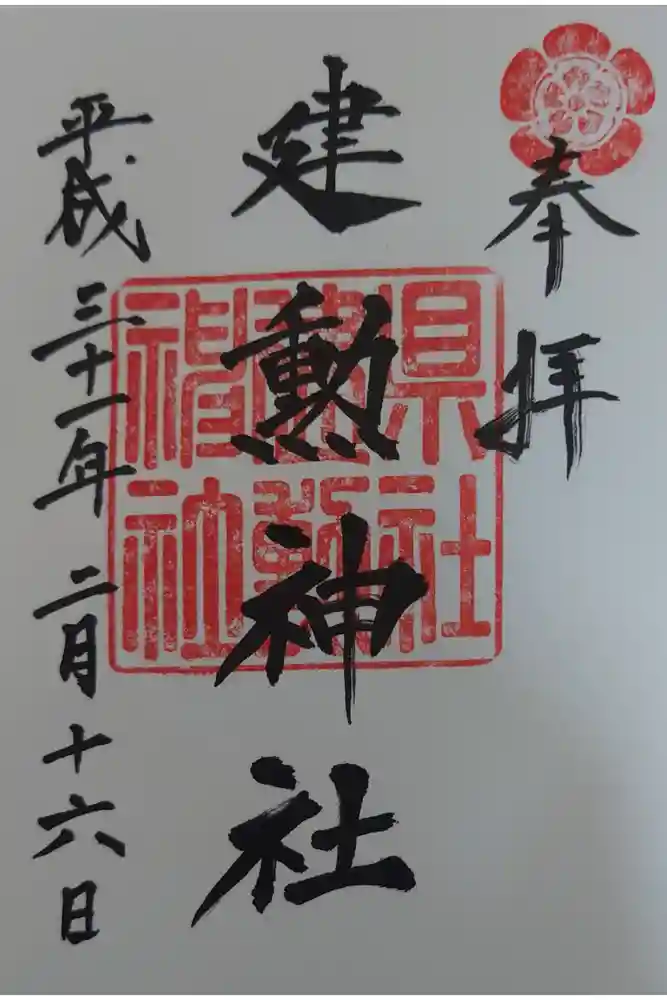 奉拝
建勲神社
平成三十一年二月十六日
県社
建勲
神社